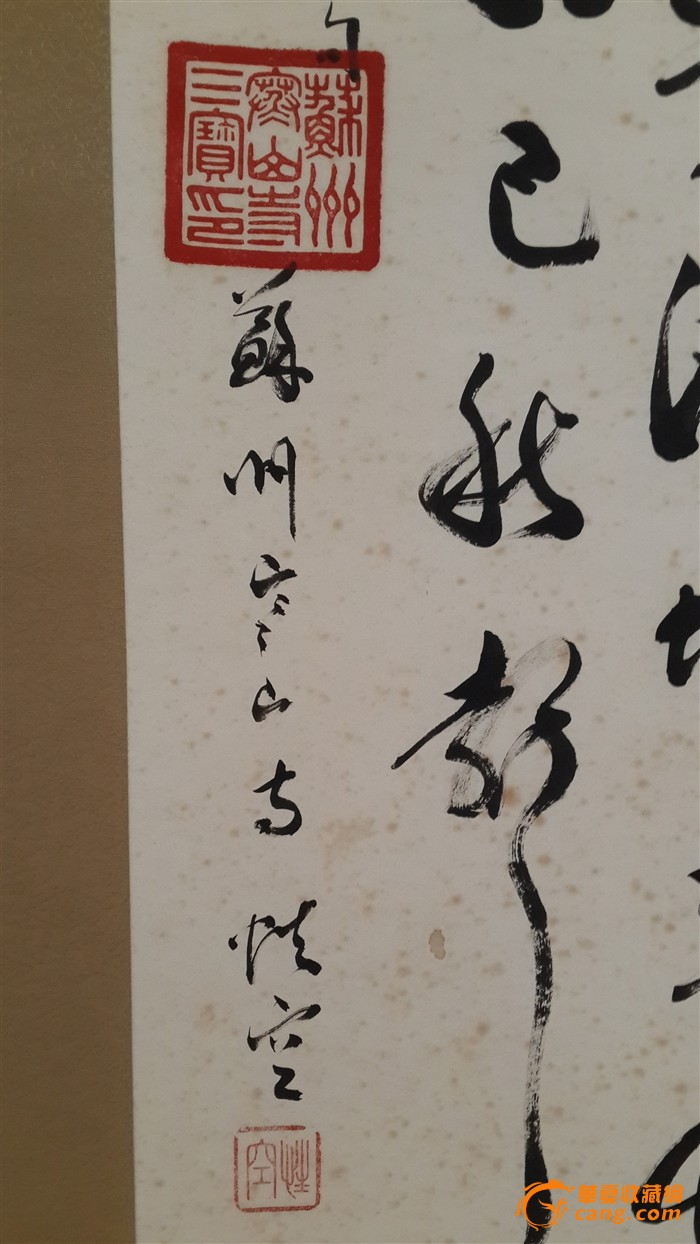 已秋聲
蘇州
寒山寺
三寶印
蘇州寒山寺 性空
性空
華夏收藏網
cang.com